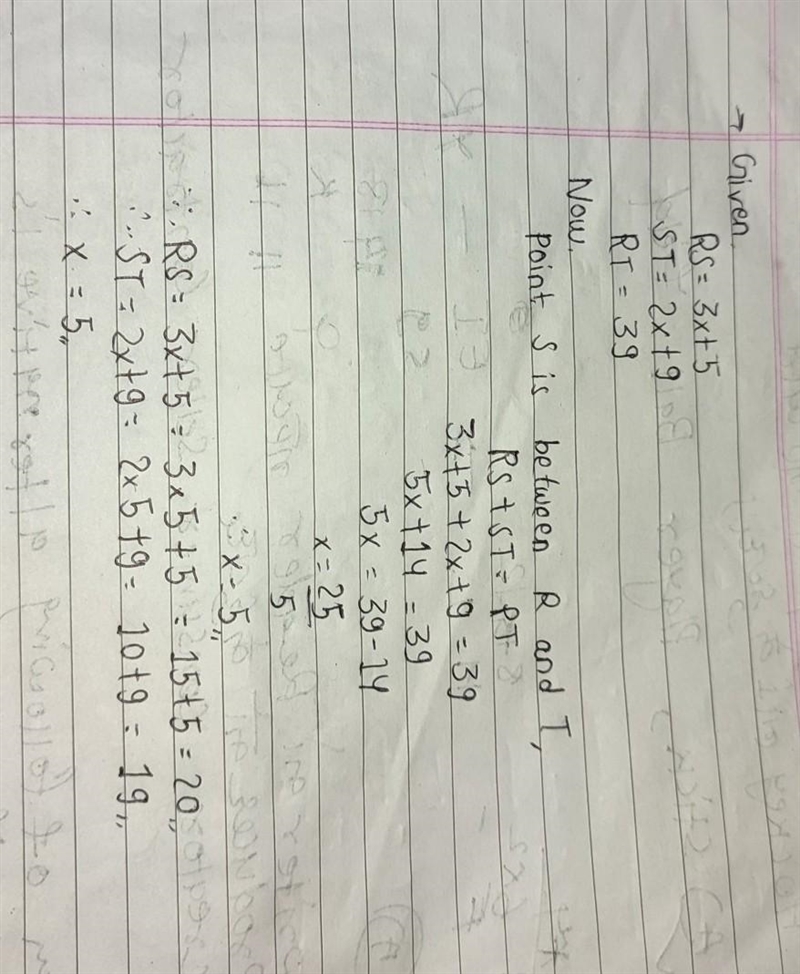 → Given.
RS = 3x+5
ST = 2x+9
RT = 39
Now.
point S is between R and T,
RS + ST = RT
3x+5+2x+9 = 39
5x+14 = 39
5x = 39-14
x = 25/5
∴ x = 5,,
∵ RS = 3x+5 = 3x5+5 = 15+5 = 20,,
∴ ST = 2x+9 = 2x5+9 = 10+9 = 19,,
∴ x = 5,,